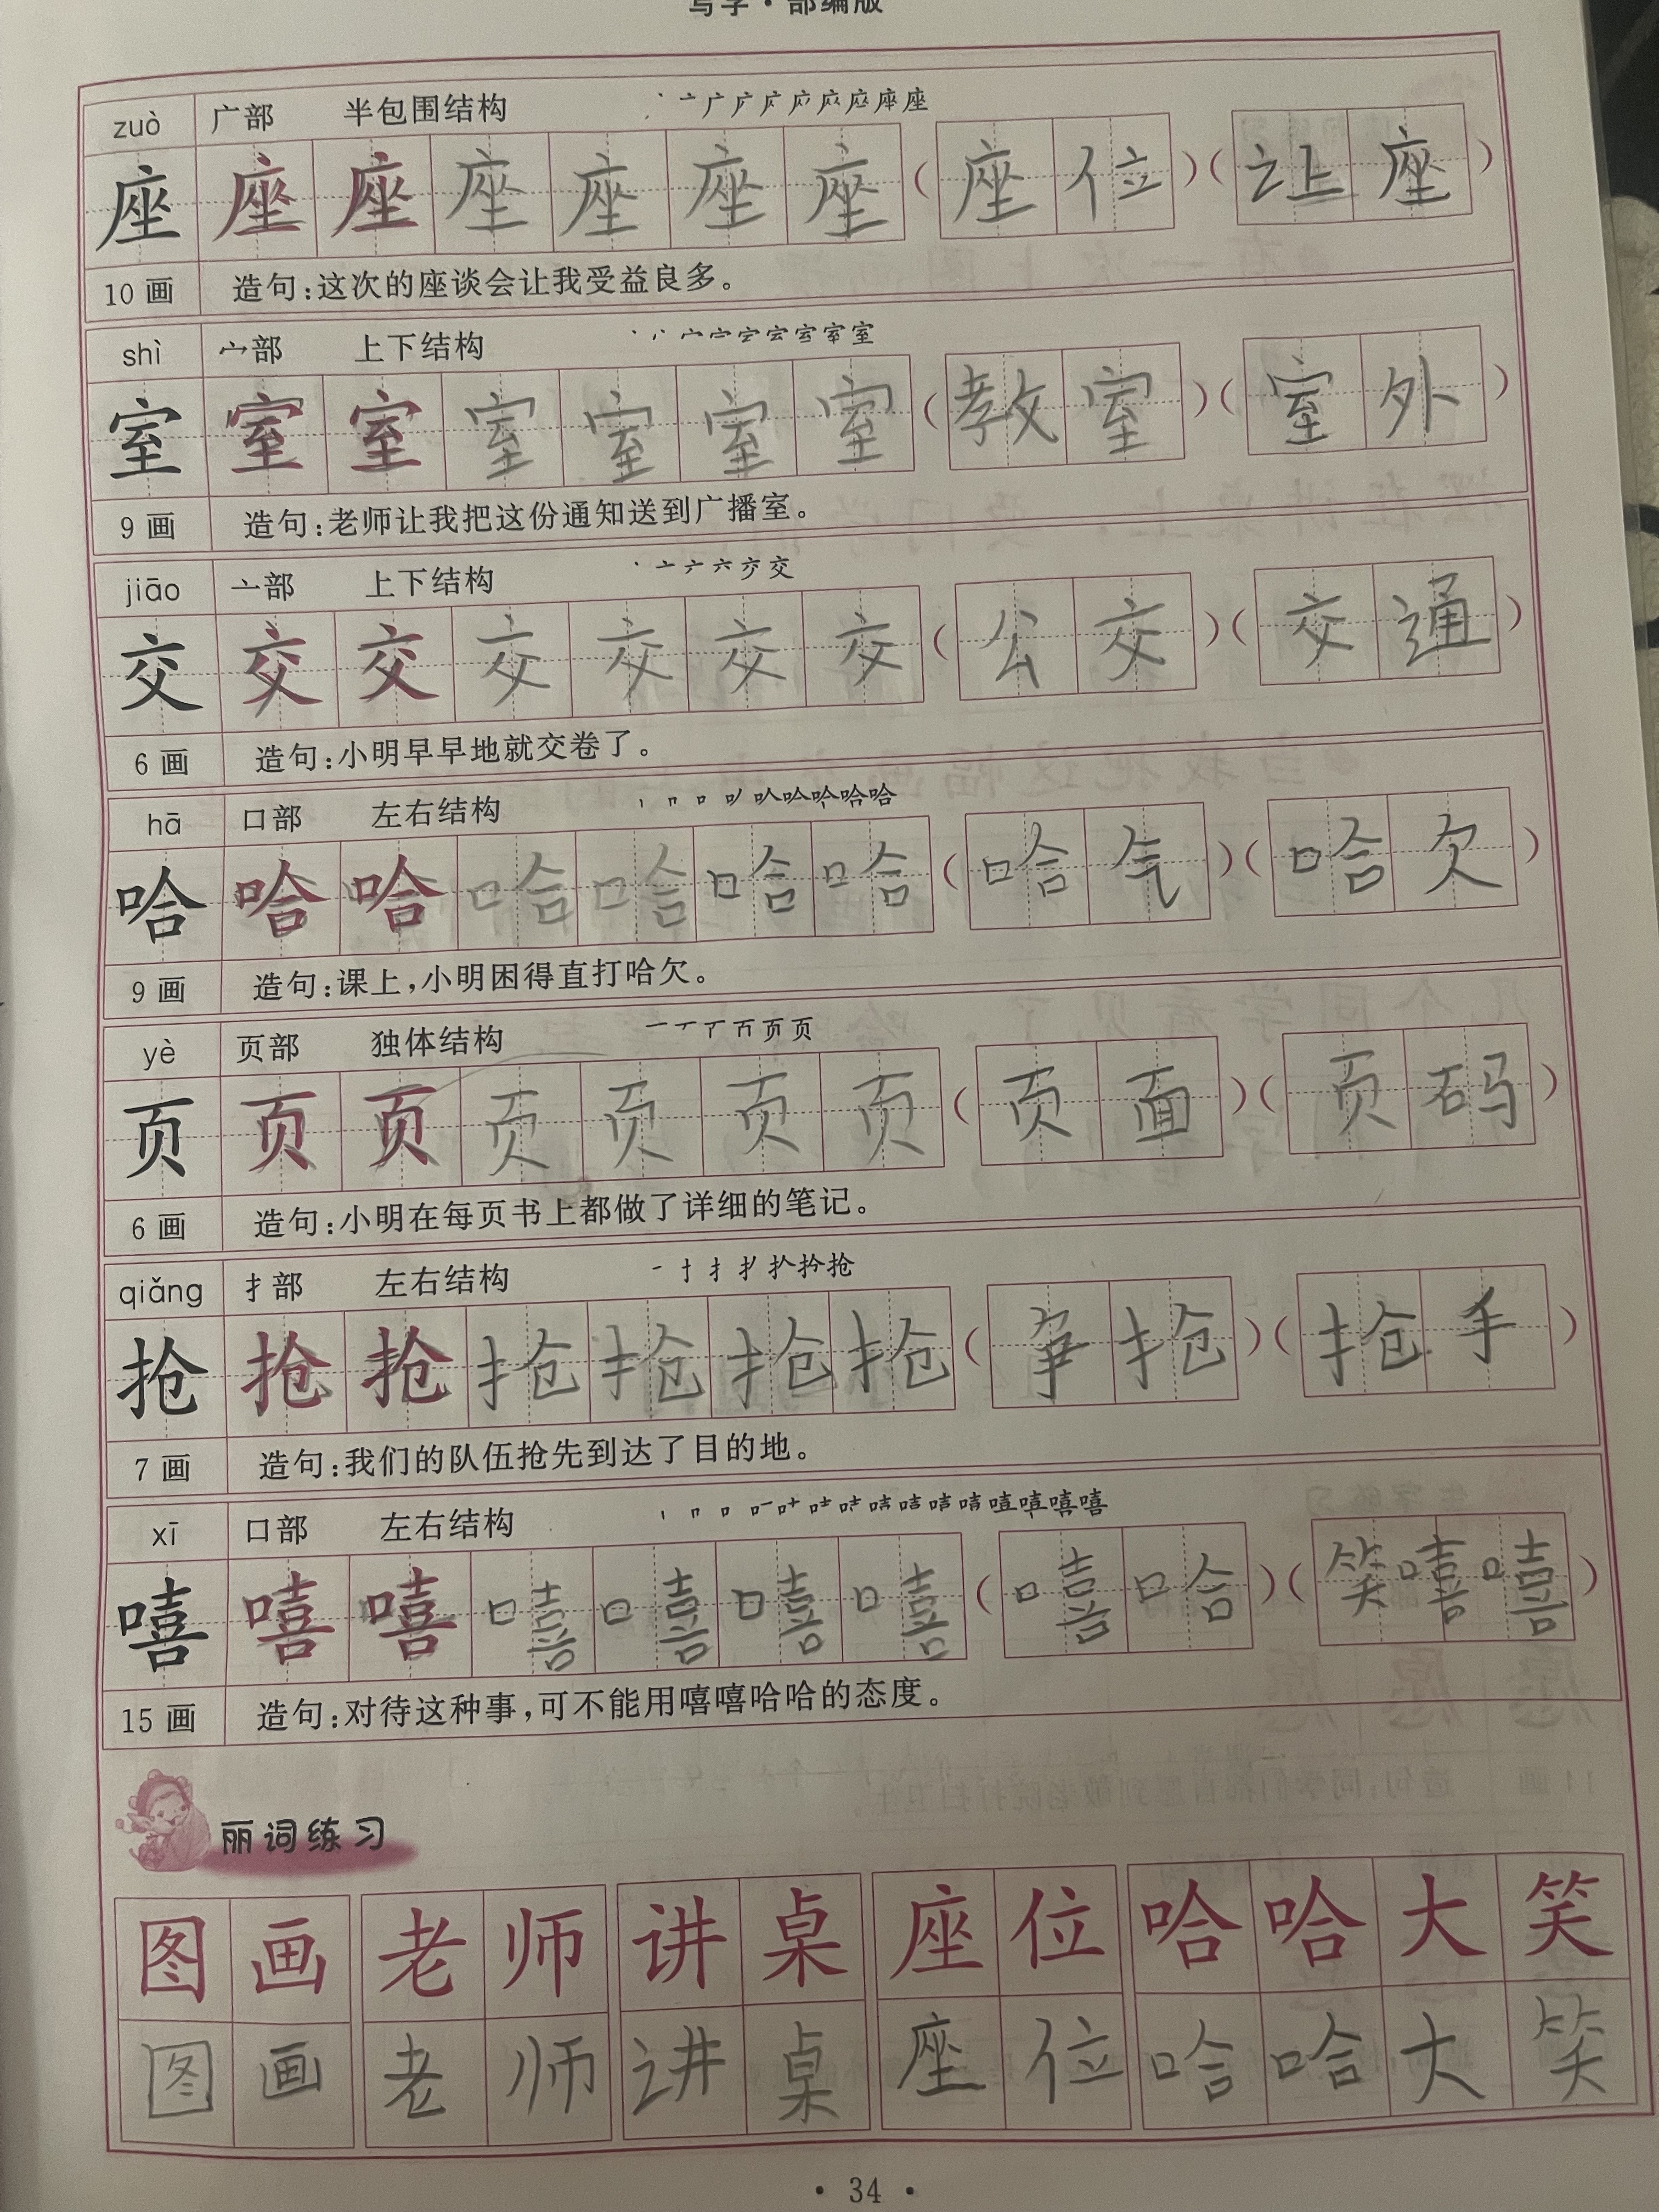 写字·部编版
zuò 广部 半包围结构
座 座 座 座 座 座 座 （座位）（让座）
10 画 造句：这次的座谈会让我受益良多。
shì 宀部 上下结构
室 室 室 室 室 室 室 （教室）（室外）
9 画 造句：老师让我把这份通知送到广播室。
jiāo 亠部 上下结构
交 交 交 交 交 交 交 （公交）（交通）
6 画 造句：小明早早地就交卷了。
hā 口部 左右结构
哈 哈 哈 哈 哈 哈 哈 （哈气）（哈欠）
9 画 造句：课上，小明困得直打哈欠。
yè 页部 独体结构
页 页 页 页 页 页 页 （页面）（页码）
6 画 造句：小明在每页书上都做了详细的笔记。
qiǎng 扌部 左右结构
抢 抢 抢 抢 抢 抢 抢 （争抢）（抢手）
7 画 造句：我们的队伍抢先到达了目的地。
xī 口部 左右结构
嘻 嘻 嘻 嘻 嘻 嘻 嘻 （嘻哈）（笑嘻嘻）
15 画 造句：对待这种事，可不能用嘻嘻哈哈的态度。
丽词练习
图画 老师 讲桌 座位 哈哈大笑
图画 老师 讲桌 座位 哈哈大笑
· 34 ·